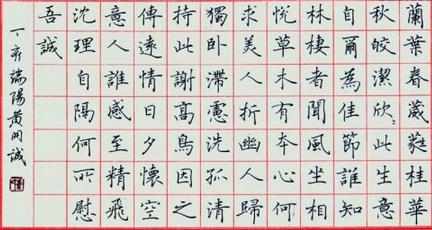 蘭葉春葳蕤桂華
秋皎潔欣〻此生意
自爾為佳節誰知
林棲者聞風坐相
悅草木有本心何
求美人折幽人歸
獨臥滯慮洗孤清
持此謝高鳥因之
傳遠情日夕懷空
意人誰感至精飛
沈理自隔何所慰
吾誠
丁亥端陽黃誠